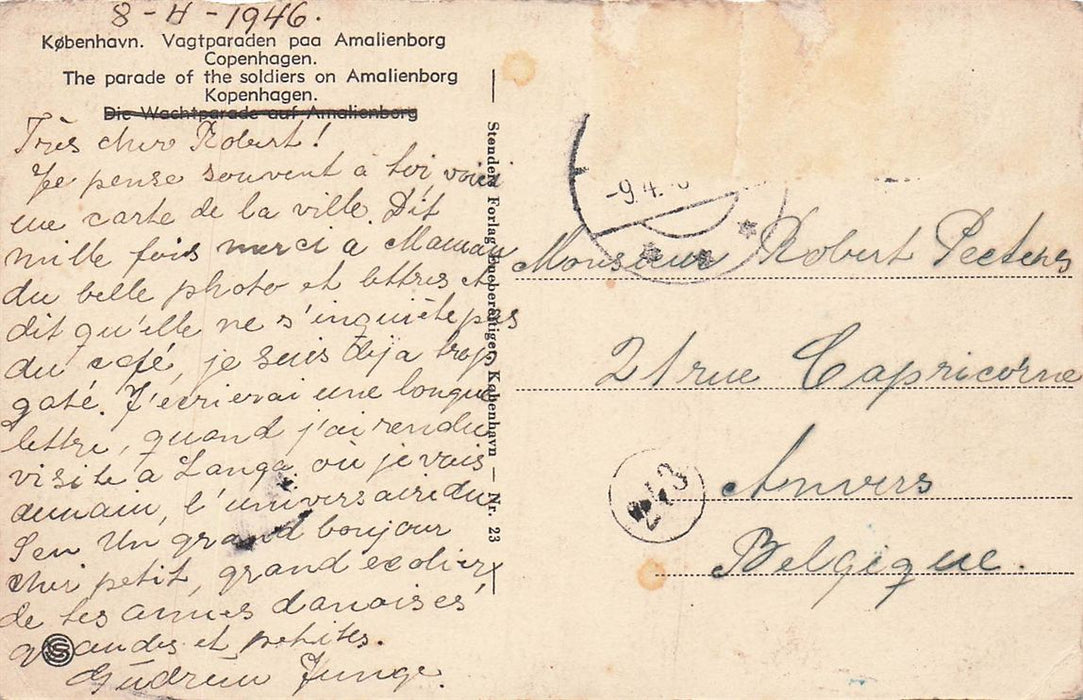 8-4-1946.
København. Vagtparaden paa Amalienborg
Copenhagen.
The parade of the soldiers on Amalienborg
Kopenhagen.
Die Wachtparade auf Amalienborg
Très cher Robert!
Je pense souvent à toi, voici
une carte de la ville. Dit
mille fois merci à Maman
du belle photo et lettres et
dit qu'elle ne s'inquiéte pas
du café, je suis déja trop
gaté. J'ecrierai une longue
lettre, quand j'ai rendu
visite à Langå, où je vais
demain, l'universaire du
Un grand bonjour
cher petit, grand ecolier
de tes amies danoises
grandes et petites.
Gudrun Junge.
Stenders Forlag Eneberettiget, København — Nr. 23
-9.4.
Monsieur Robert Peeters
21 rue Capricorne
243
Anvers
Belgique.
S